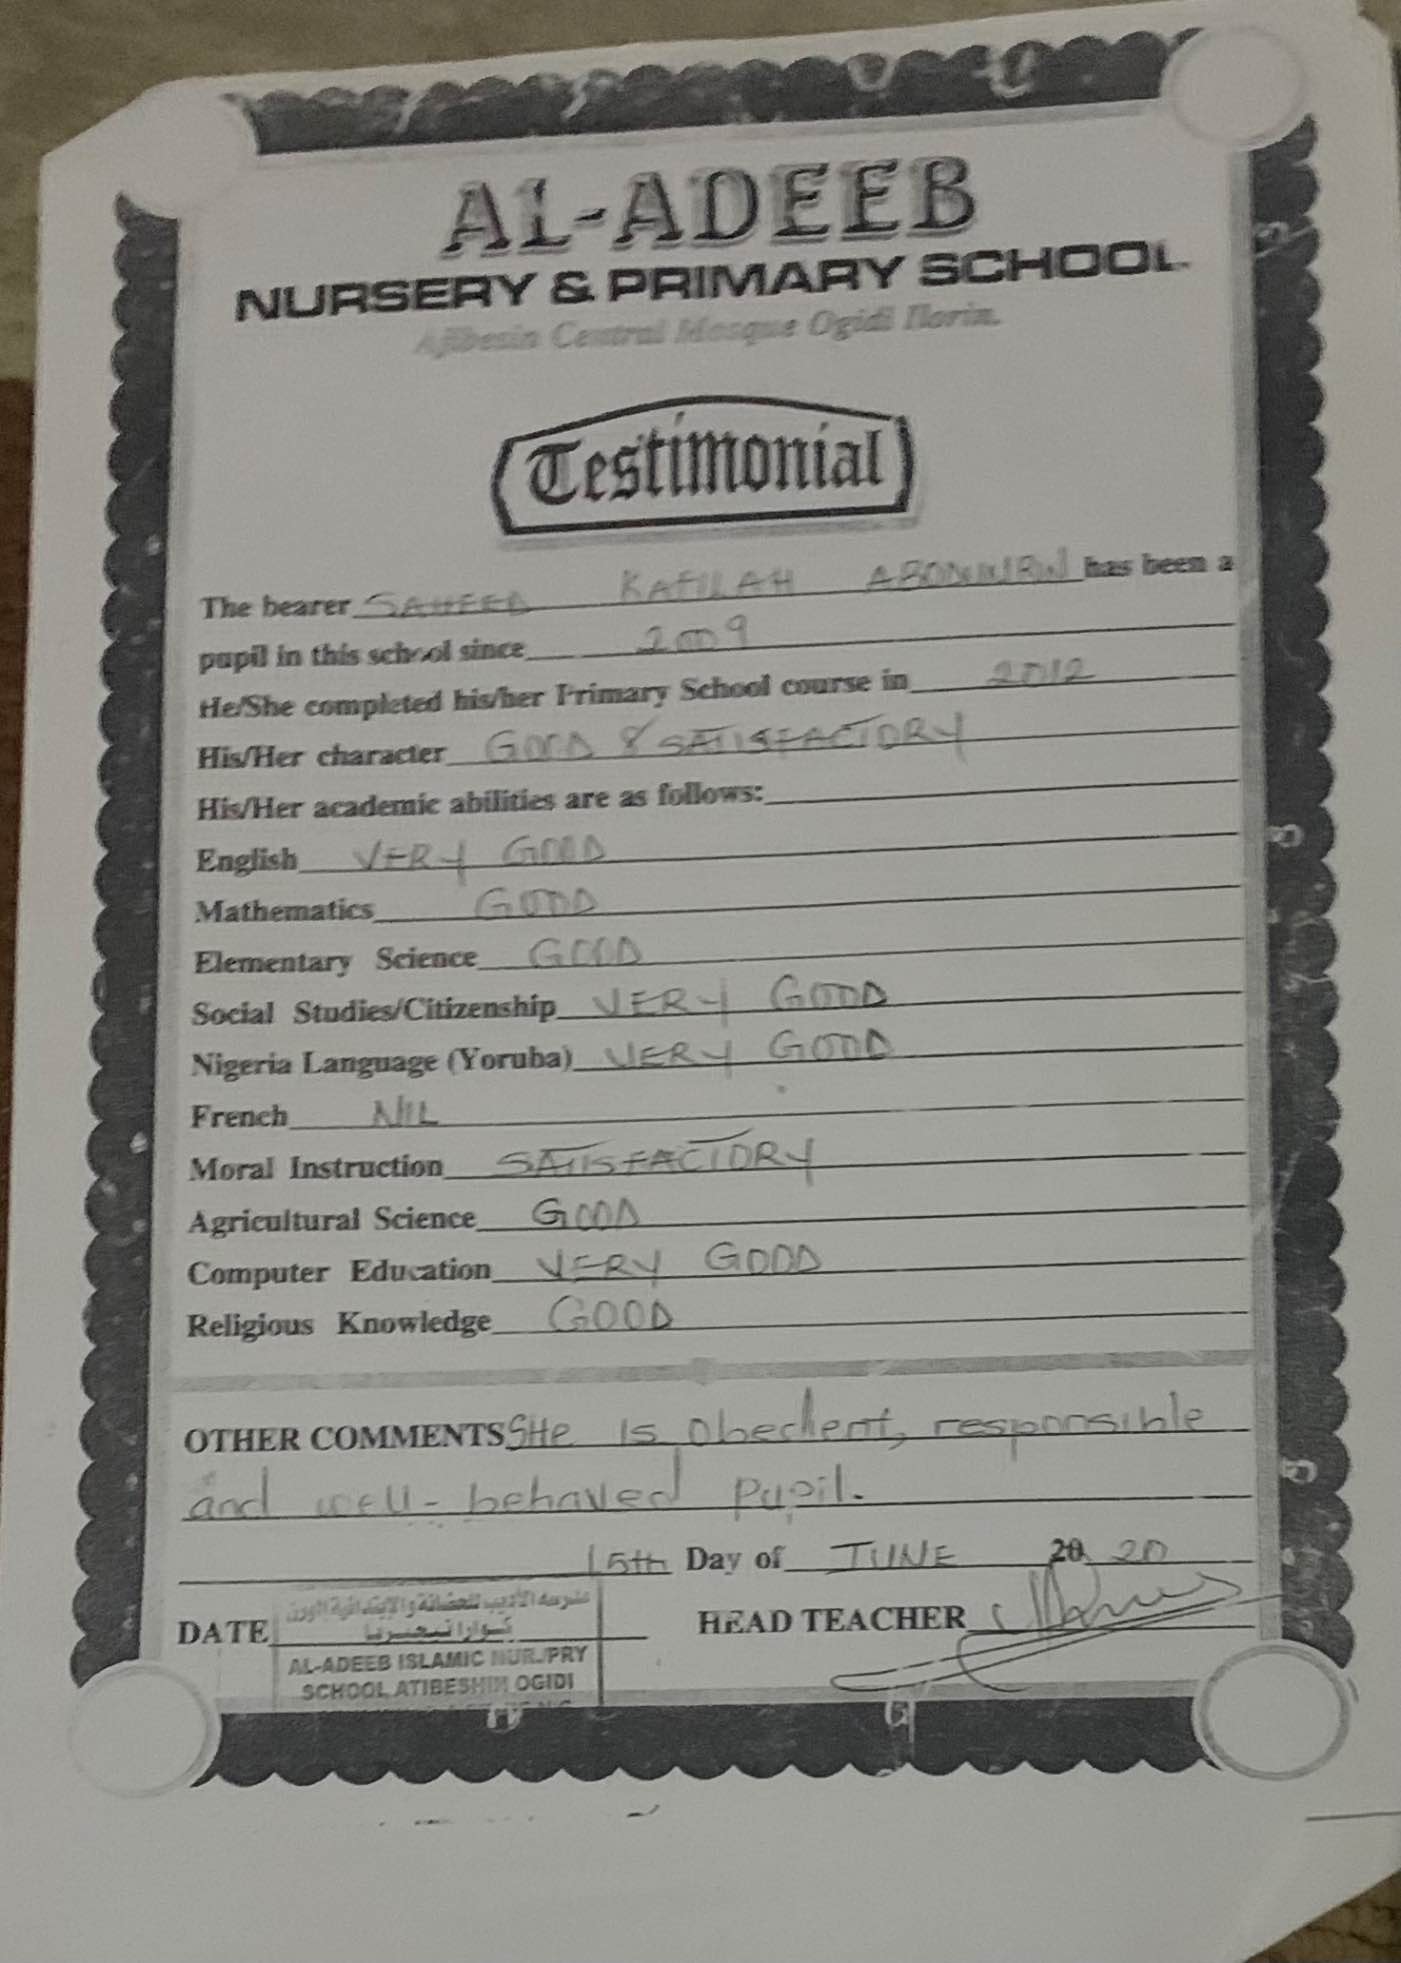 AL-ADEEB
NURSERY & PRIMARY SCHOOL
Ajibesin Central Mosque Ogidi Ilorin.
Testimonial
The bearer SAHEED KAFILAH ABODUNRIN has been a
pupil in this school since 2009
He/She completed his/her Primary School course in 2012
His/Her character GOOD & SATISFACTORY
His/Her academic abilities are as follows:
English VERY GOOD
Mathematics GOOD
Elementary Science GOOD
Social Studies/Citizenship VERY GOOD
Nigeria Language (Yoruba) VERY GOOD
French NIL
Moral Instruction SATISFACTORY
Agricultural Science GOOD
Computer Education VERY GOOD
Religious Knowledge GOOD
OTHER COMMENTS SHe is obedient, responsible
and well-behaved pupil.
15th Day of JUNE 20 20
DATE HEAD TEACHER
مدرسة الأديب للحضانة والإبتدائية الورن
كوارا نيجيريا
AL-ADEEB ISLAMIC NUR./PRY
SCHOOL ATIBESHIN OGIDI